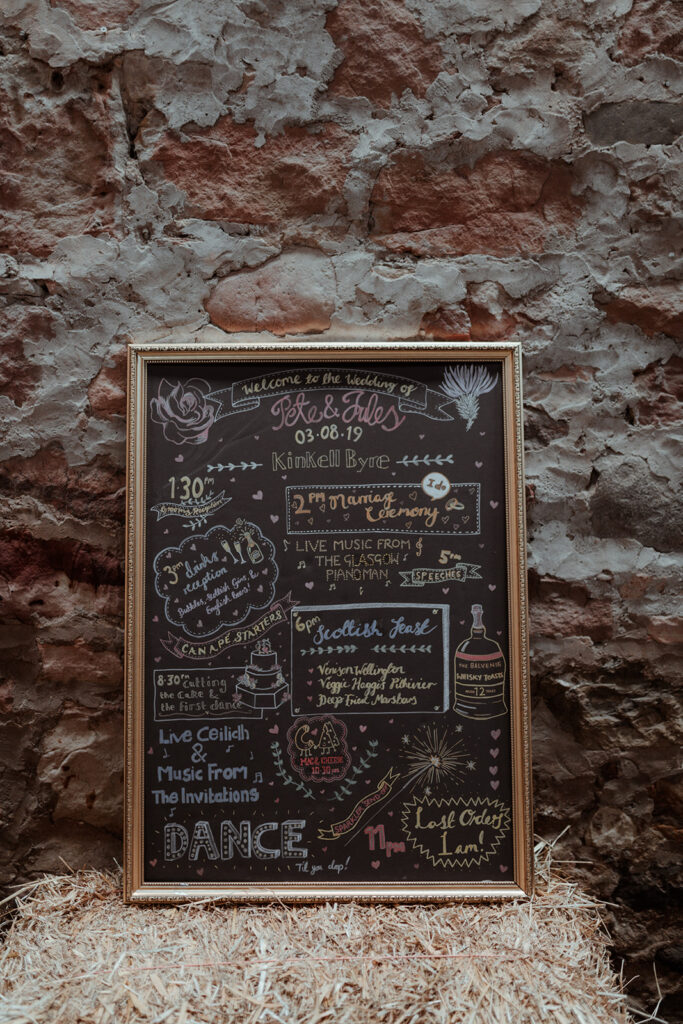 Welcome to the Wedding of
Pete & Jules
03·08·19
Kinkell Byre
1:30PM
I do
2PM Marriage
Ceremony
LIVE MUSIC FROM
THE GLASGOW
PIANOMAN
5pm
SPEECHES
3pm Drinks
reception
Bubbles, Scottish Gins, &
English Beers!
CANAPÉ STARTERS
6pm
Scottish Feast
Venison Wellington
Veggie Haggis Pithivier
Deep Fried Marsbars
THE BALVENIE
WHISKY TOASTS
AGED 12 YEARS
8:30PM Cutting
the Cake &
the first dance
Live Ceilidh
&
Music From
The Invitations
MAC & CHEESE
10:30pm
SPARKLER SEND
11pm
Last Orders
1am!
DANCE
'Til you drop!